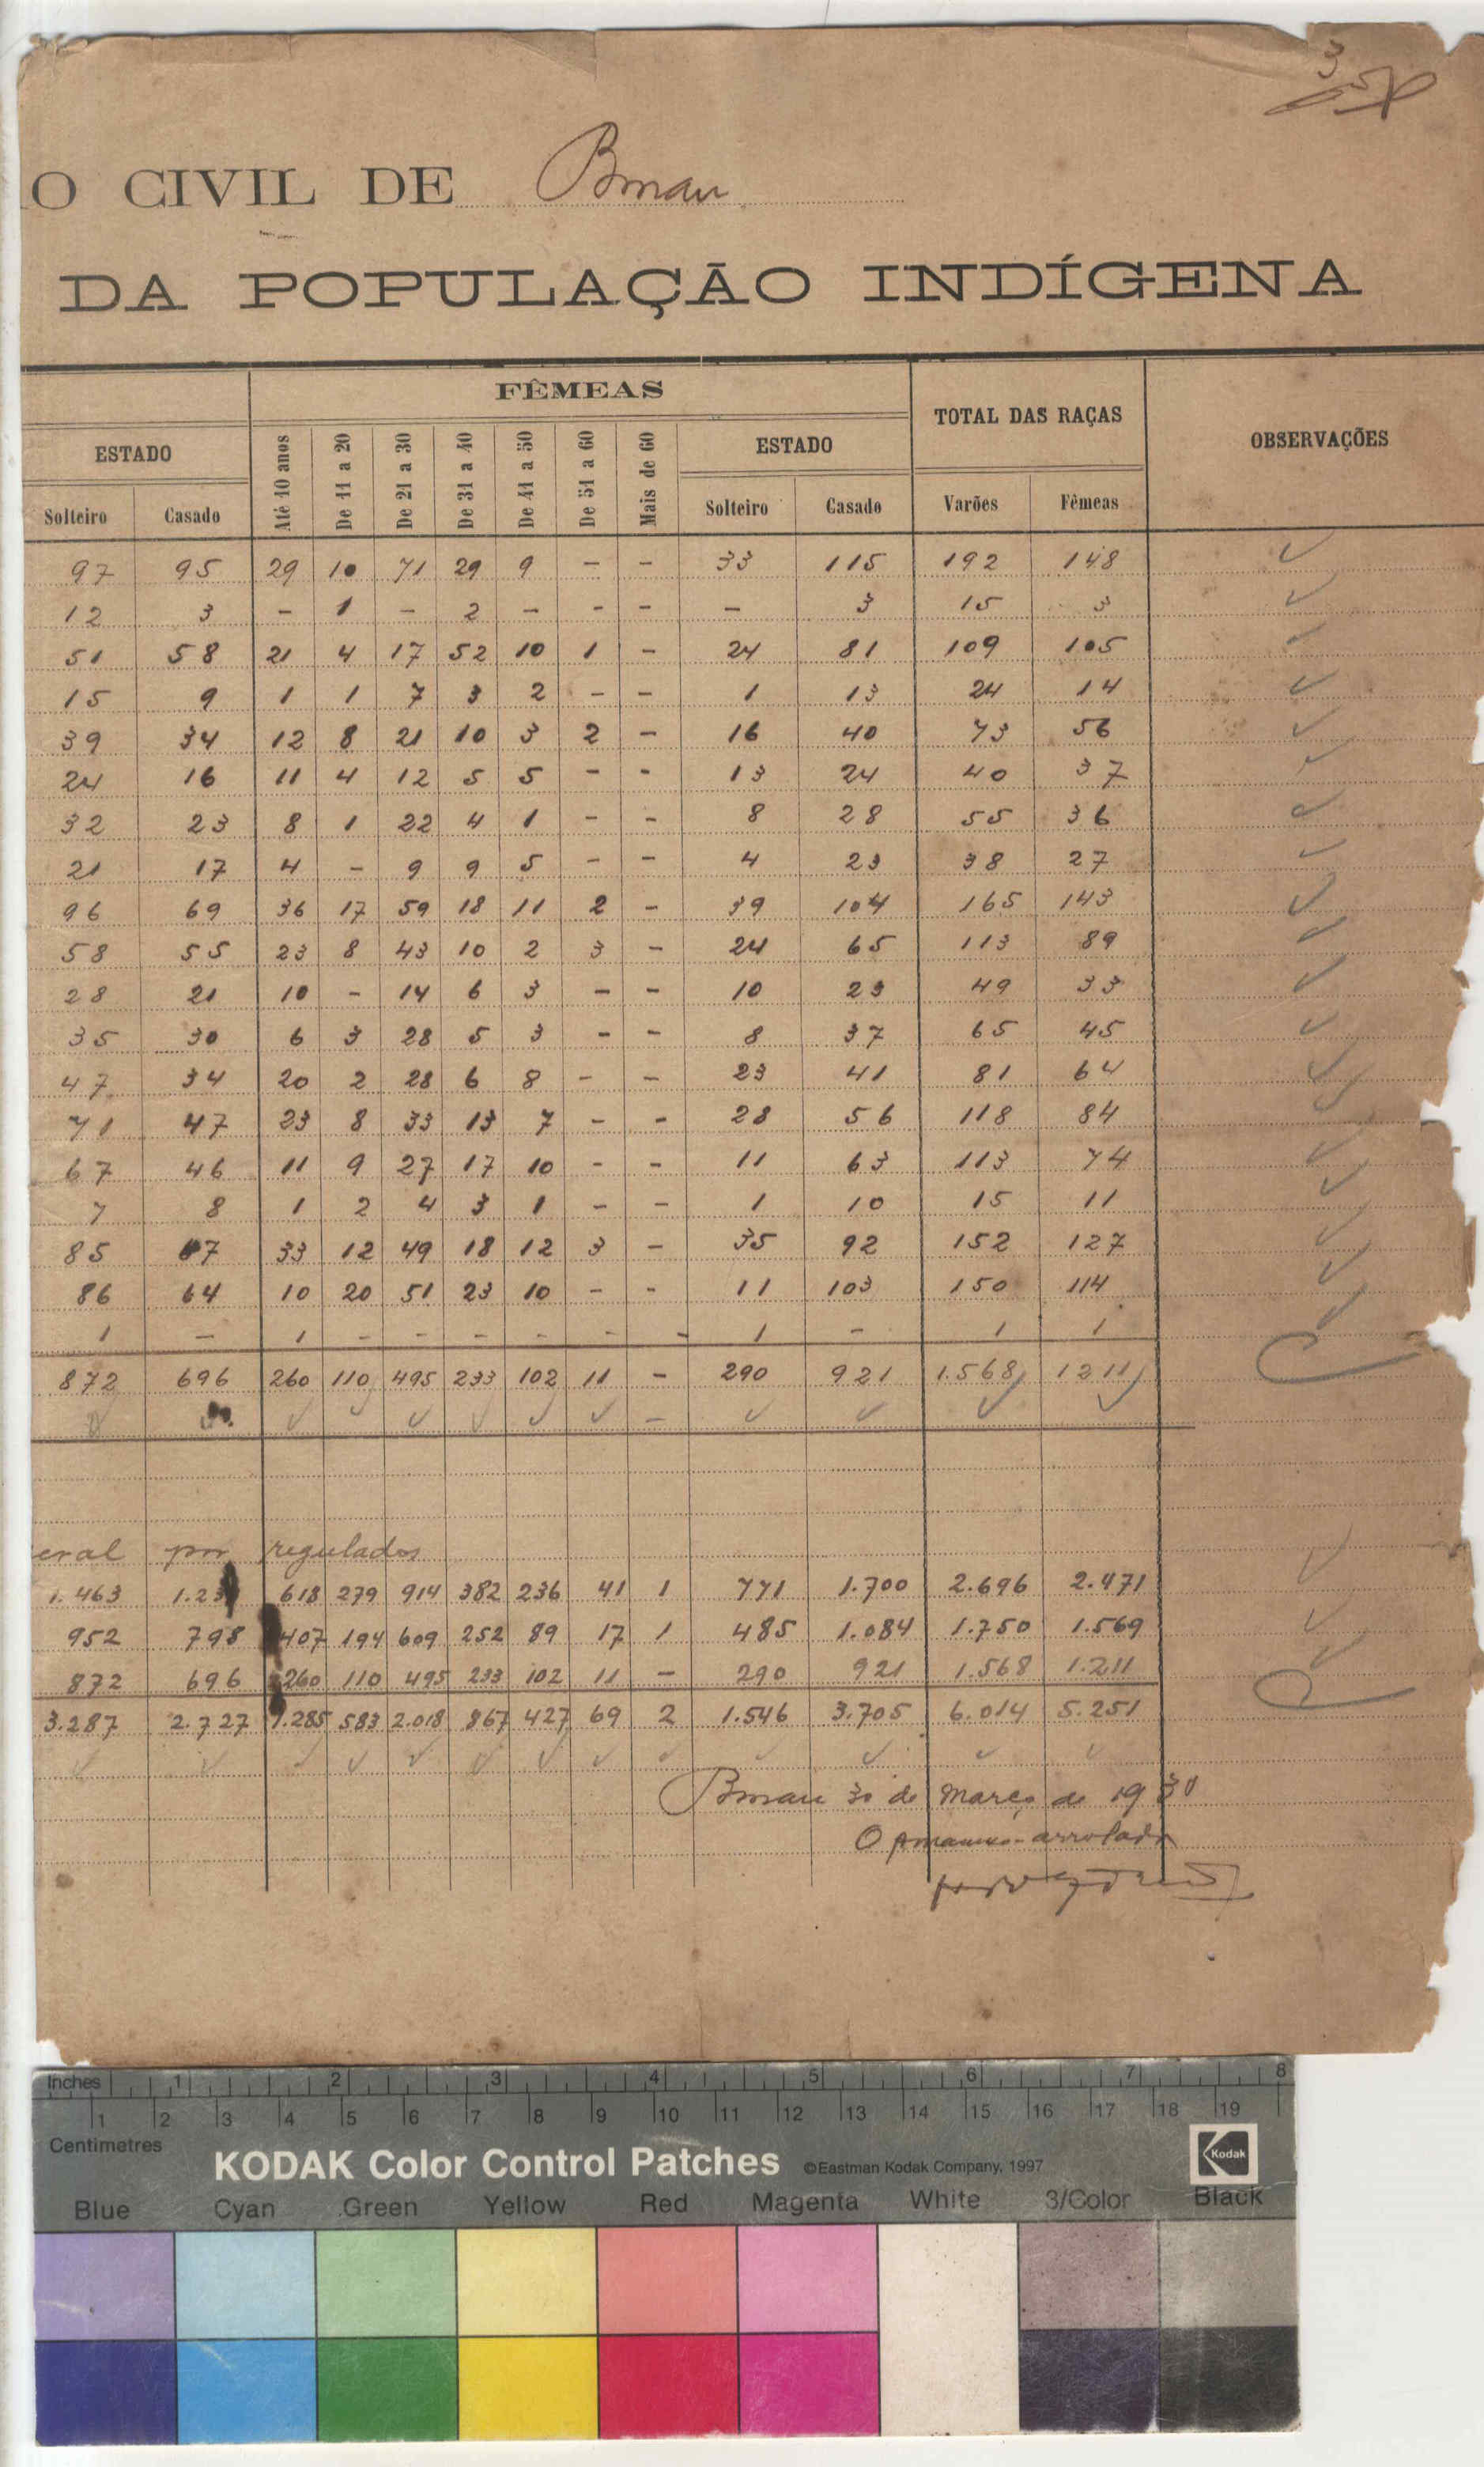 3
O CIVIL DE
DA POPULAÇÃO INDÍGENA
FÊMEAS
TOTAL DAS RAÇAS
OBSERVAÇÕES
ESTADO
ESTADO
Solteiro Casado Até 10 anos De 11 a 20 De 21 a 30 De 31 a 40 De 41 a 50 De 51 a 60 Mais de 60 Solteiro Casado Varões Fêmeas
97 95 29 10 71 29 9 - - 33 115 192 148
12 3 - 1 - 2 - - - - 3 15 3
51 58 21 4 17 52 10 1 - 24 81 109 105
15 9 1 1 7 3 2 - - 1 13 24 14
39 34 12 8 21 10 3 2 - 16 40 73 56
24 16 11 4 12 5 5 - - 13 24 40 37
32 23 8 1 22 4 1 - - 8 28 55 36
21 17 4 - 9 9 5 - - 4 23 38 27
96 69 36 17 59 18 11 2 - 39 104 165 143
58 55 23 8 43 10 2 3 - 24 65 113 89
28 21 10 - 14 6 3 - - 10 23 49 33
35 30 6 3 28 5 3 - - 8 37 65 45
47 34 20 2 28 6 8 - - 23 41 81 64
71 47 23 8 33 13 7 - - 28 56 118 84
67 46 11 9 27 17 10 - - 11 63 113 74
7 8 1 2 4 3 1 - - 1 10 15 11
85 67 33 12 49 18 12 3 - 35 92 152 127
86 64 10 20 51 23 10 - - 11 103 150 114
1 - 1 - - - - - - 1 - 1 1
872 696 260 110 495 233 102 11 - 290 921 1.568 1211
eral por regulados
1.463 618 279 914 382 236 41 1 771 1.700 2.696 2.471
952 798 407 194 609 252 89 17 1 485 1.084 1.750 1.569
872 696 260 110 495 233 102 11 - 290 921 1.568 1.211
3.287 2.727 1.285 583 2.018 867 427 69 2 1.546 3.705 6.014 5.251
30 de Março de 1930
O arrolador
Inches 1 2 3 4 5 6 7 8
1 2 3 4 5 6 7 8 9 10 11 12 13 14 15 16 17 18 19
Centimetres
KODAK Color Control Patches ©Eastman Kodak Company, 1997 Kodak
Blue Cyan Green Yellow Red Magenta White 3/Color Black